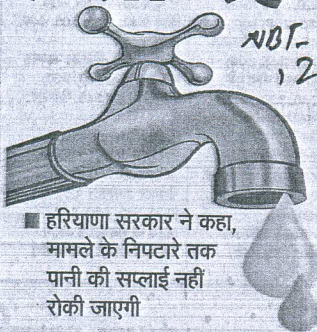 NBT-
, 2
■ हरियाणा सरकार ने कहा,
मामले के निपटारे तक
पानी की सप्लाई नहीं
रोकी जाएगी